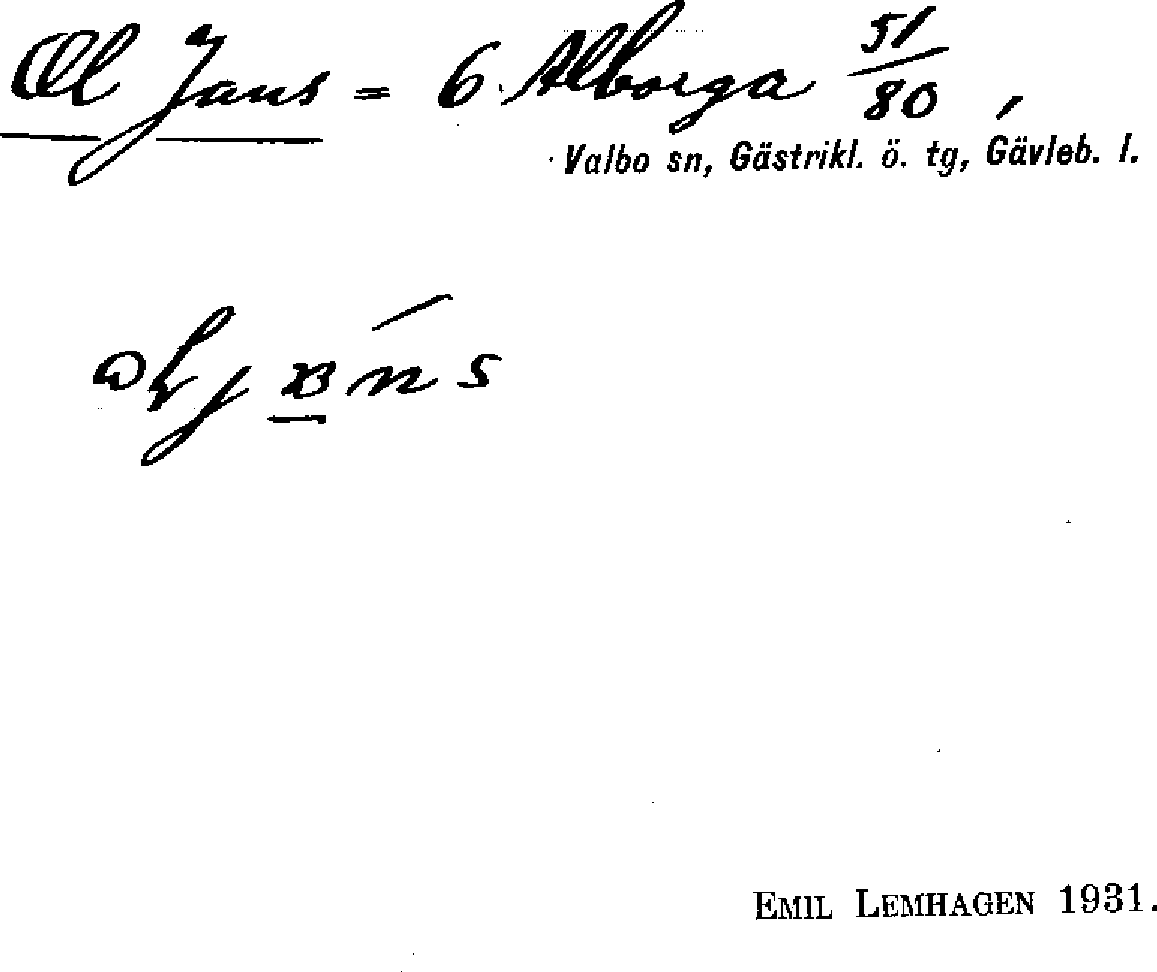 Ol Jans = 6. Alborga 51/80,
Valbo sn, Gästrikl. ö. tg, Gävleb. l.
EMIL LEMHAGEN 1931.